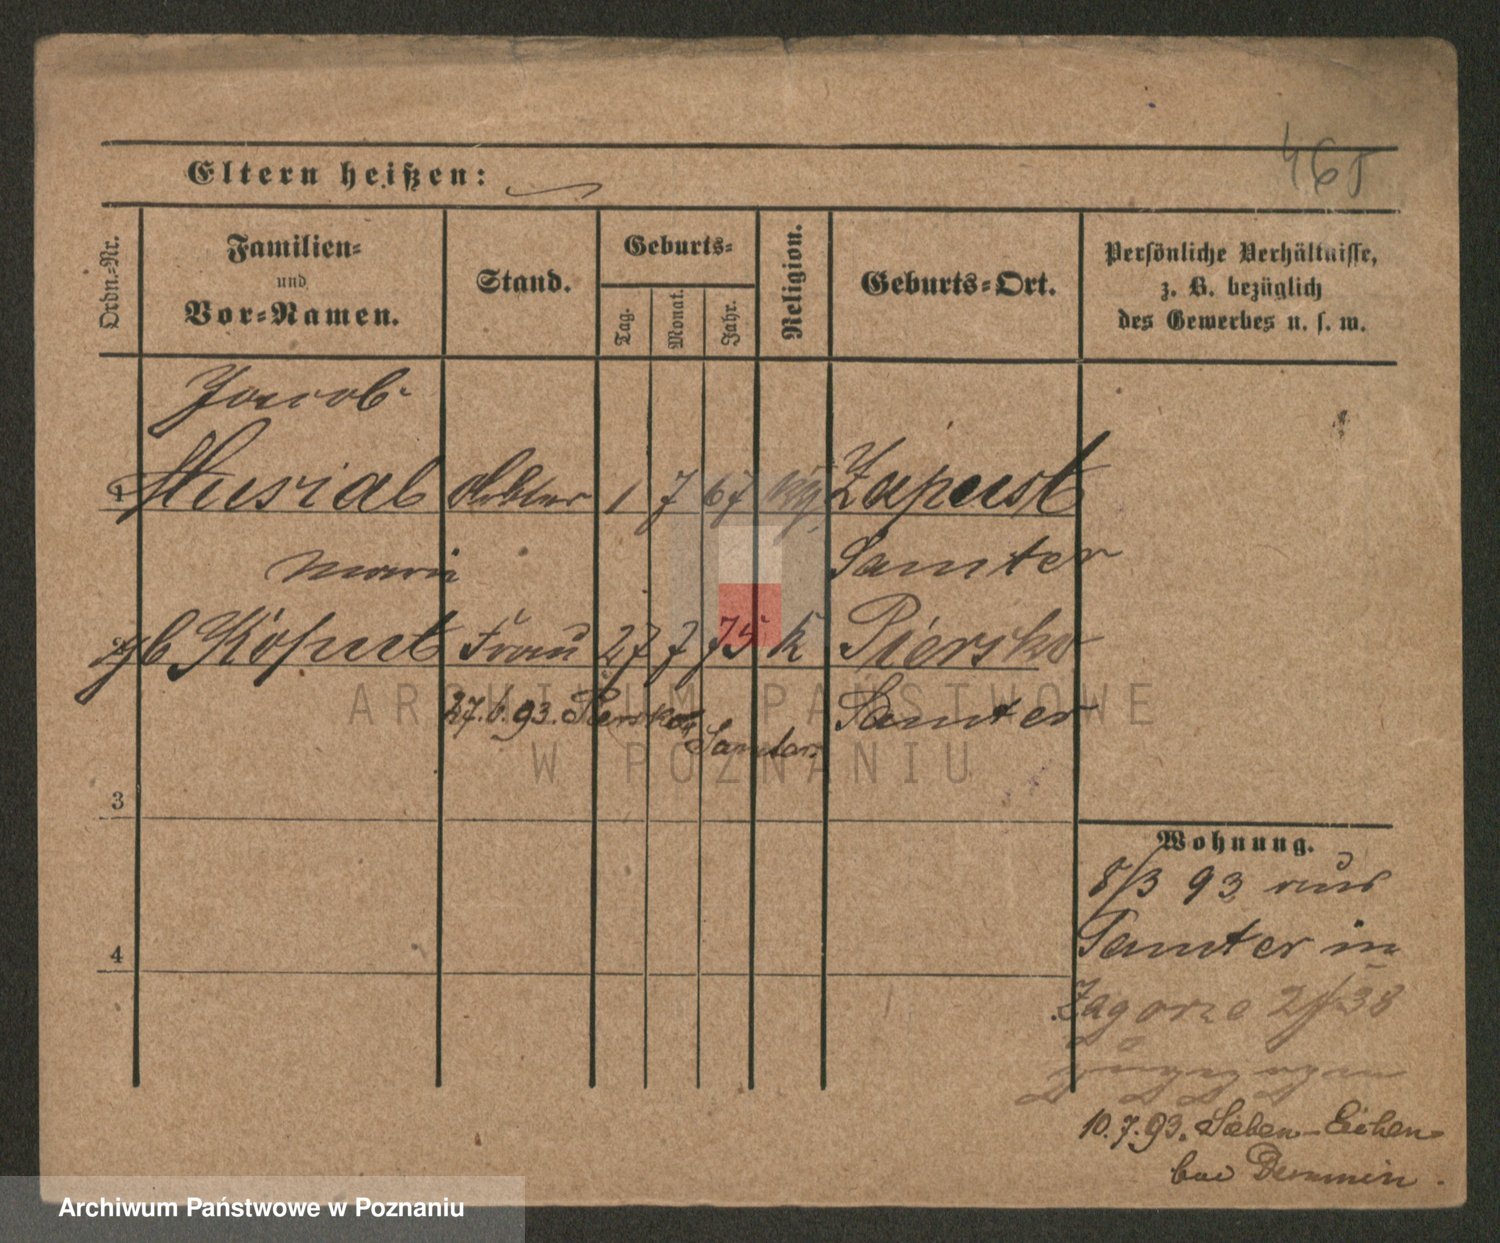 465
Eltern heißen:
Ordn.-Nr.
Familien-
und
Vor-Namen.
Stand.
Geburts-
Tag.
Monat.
Jahr.
Religion.
Geburts-Ort.
Persönliche Verhältnisse,
z. B. bezüglich
des Gewerbes u. s. w.
Jacob
1 Musial 1 7 67 Zapust
Samter
gb Koput Frau 27 7 75 k Piersko
Samter
27.6.93. Piersko
Samter.
3
4
Wohnung.
8/3 93 aus
Samter in
Zagorze
10.7.93. Sieben-Eichen
bei Demmin.
ARCHIWUM PAŃSTWOWE
W POZNANIU
Archiwum Państwowe w Poznaniu